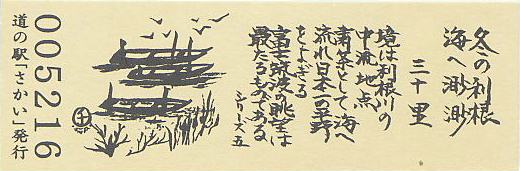 冬の利根
海へ渺渺
三十里
境は利根川の
中流地点
流れ日本一の平野
をよぎる
富士筑波の眺望は
最たるものである
シリーズ五
005216
道の駅「さかい」発行